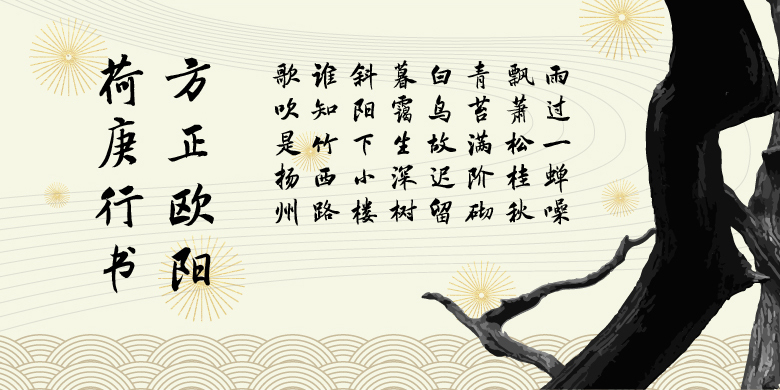 雨过一蝉噪
飘萧松桂秋
青苔满阶砌
白鸟故迟留
暮霭生深树
斜阳下小楼
谁知竹西路
歌吹是扬州
方正欧阳
荷庚行书